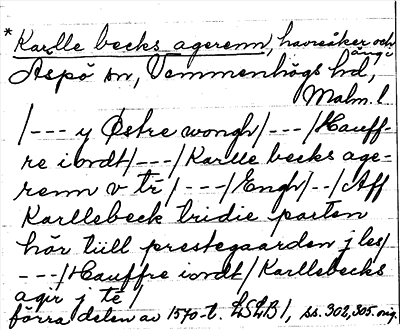 * Karlle becks agerenn, havreåker och äng i
Aspö sn, Vemmenhögs hd,
Malm. l.
/--- y Østre wongh/---/Hauff-
re iordt/---/Karlle becks age-
renn v tř/---/Engh/--/Aff
Karllebeck tridie parten
hör tiill prestegaarden j les/
---/Hauffre iordt/Karllebecks
agir j tě/
förra delen av 1570-t. LSLB 1, ss. 302, 305. orig.